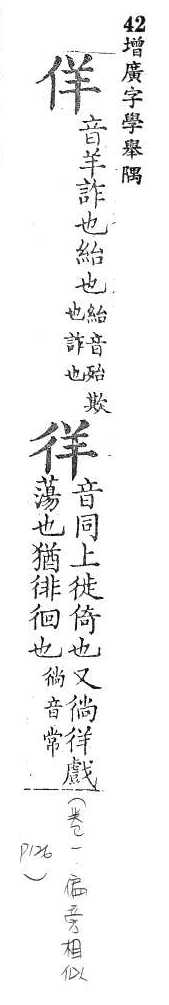 42增廣字學舉隅
佯 音羊詐也紿也紿音殆欺
也詐也
徉 音同上徙倚也又徜徉戲
蕩也猶徘徊也徜音常
(卷一.偏旁相似
P126)